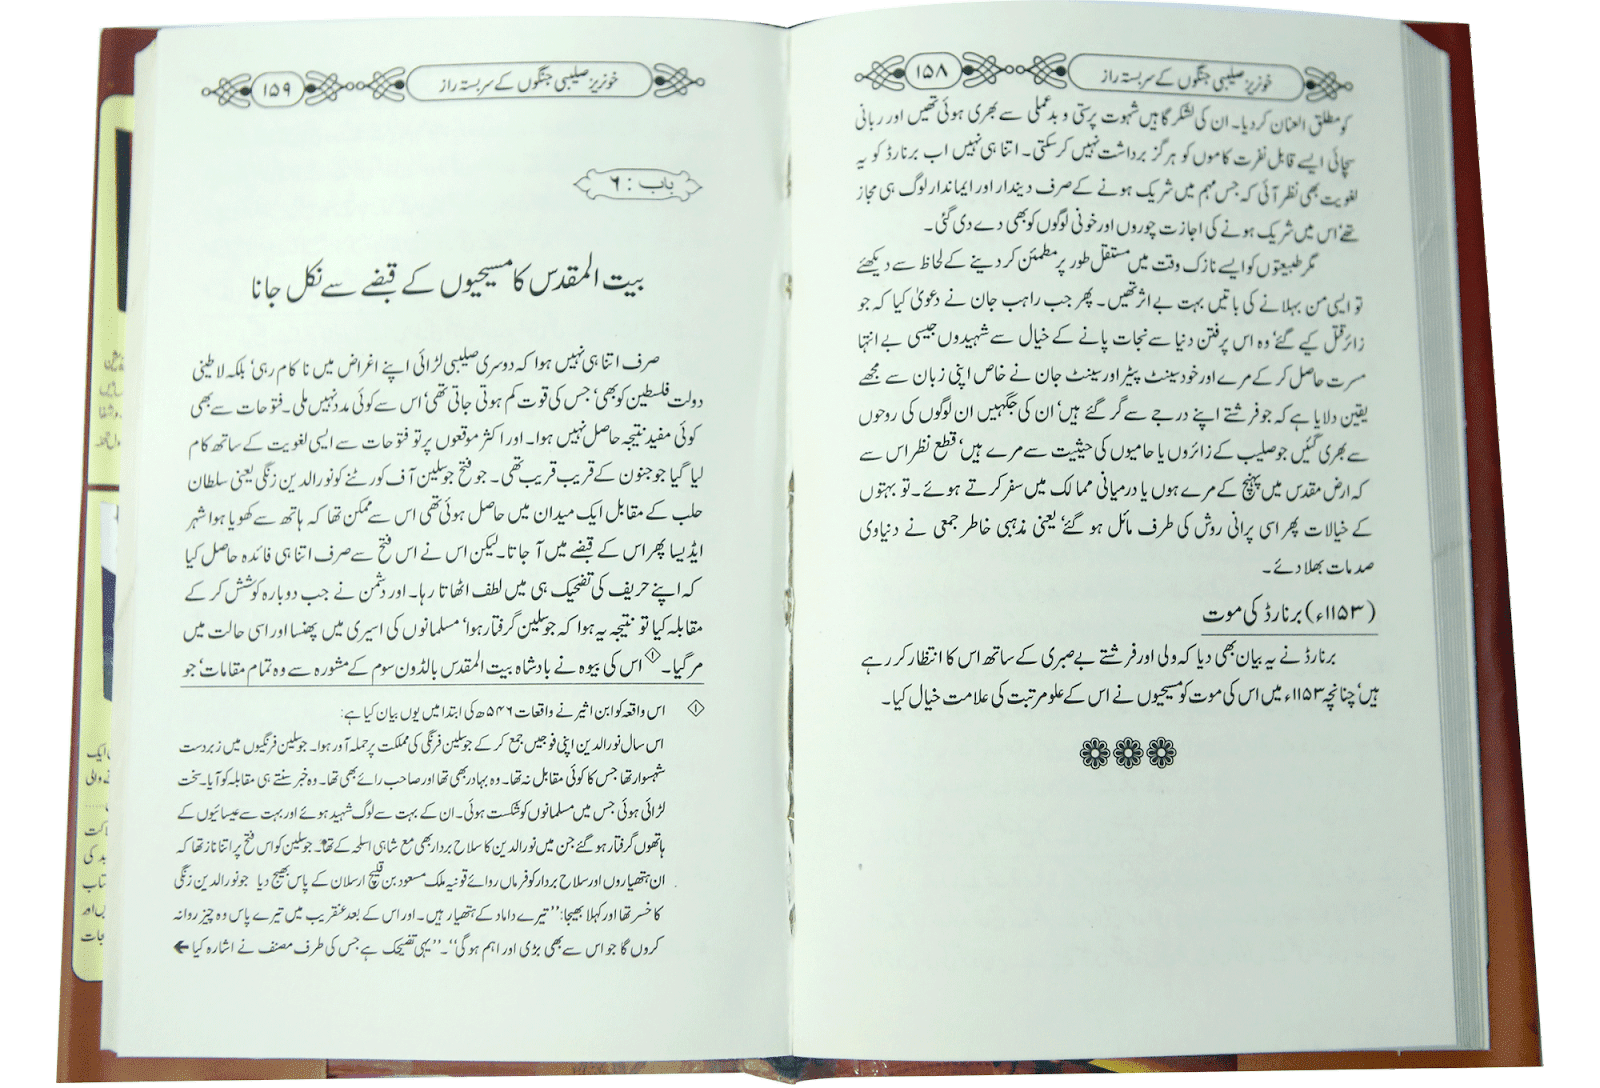 خونریز صلیبی جنگوں کے سربستہ راز
۱۵۸
کو مطلق العنان کر دیا۔ ان کی لشکر گاہیں شہوت پرستی و بدعملی سے بھری ہوئی تھیں اور ربانی
سچائی ایسے قابل نفرت کاموں کو ہرگز برداشت نہیں کر سکتی۔ اتنا ہی نہیں اب برنارڈ کو یہ
لغویت بھی نظر آئی کہ جس مہم میں شریک ہونے کے صرف دیندار اور ایماندار لوگ ہی مجاز
تھے' اس میں شریک ہونے کی اجازت چوروں اور خونی لوگوں کو بھی دے دی گئی۔
مگر طبیعتوں کو ایسے نازک وقت میں مستقل طور پر مطمئن کر دینے کے لحاظ سے دیکھئے
تو ایسی من بہلانے کی باتیں بہت بے اثر تھیں۔ پھر جب راہب جان نے دعویٰ کیا کہ جو
زائر قتل کیے گئے' وہ اس پرفتن دنیا سے نجات پانے کے خیال سے شہیدوں جیسی بے انتہا
مسرت حاصل کر کے مرے اور خود سینٹ پیٹر اور سینٹ جان نے خاص اپنی زبان سے مجھے
یقین دلایا ہے کہ جو فرشتے اپنے درجے سے گر گئے ہیں' ان کی جگہیں ان لوگوں کی روحوں
سے بھری گئیں جو صلیب کے زائروں یا حامیوں کی حیثیت سے مرے ہیں' قطع نظر اس سے
کہ ارض مقدس میں پہنچ کے مرے ہوں یا درمیانی ممالک میں سفر کرتے ہوئے۔ تو بہتوں
کے خیالات پھر اسی پرانی روش کی طرف مائل ہو گئے' یعنی مذہبی خاطر جمعی نے دنیاوی
صدمات بھلا دئے۔
(۱۱۵۳ء) برنارڈ کی موت
برنارڈ نے یہ بیان بھی دیا کہ ولی اور فرشتے بے صبری کے ساتھ اس کا انتظار کر رہے
ہیں' چنانچہ ۱۱۵۳ء میں اس کی موت کو مسیحیوں نے اس کے علو مرتبت کی علامت خیال کیا۔
خونریز صلیبی جنگوں کے سربستہ راز
۱۵۹
باب : ۶
بیت المقدس کا مسیحیوں کے قبضے سے نکل جانا
صرف اتنا ہی نہیں ہوا کہ دوسری صلیبی لڑائی اپنے اغراض میں ناکام رہی' بلکہ لاطینی
دولت فلسطین کو بھی' جس کی قوت کم ہوتی جاتی تھی' اس سے کوئی مدد نہیں ملی۔ فتوحات سے بھی
کوئی مفید نتیجہ حاصل نہیں ہوا۔ اور اکثر موقعوں پر تو فتوحات سے ایسی لغویت کے ساتھ کام
لیا گیا جو جنون کے قریب قریب تھی۔ جو فتح جوسلین آف کورٹنے کو نورالدین زنگی یعنی سلطان
حلب کے مقابل ایک میدان میں حاصل ہوئی تھی اس سے ممکن تھا کہ ہاتھ سے کھویا ہوا شہر
ایڈیسا پھر اس کے قبضے میں آ جاتا۔ لیکن اس نے اس فتح سے صرف اتنا ہی فائدہ حاصل کیا
کہ اپنے حریف کی تضحیک ہی میں لطف اٹھاتا رہا۔ اور دشمن نے جب دوبارہ کوشش کر کے
مقابلہ کیا تو نتیجہ یہ ہوا کہ جوسلین گرفتار ہوا' مسلمانوں کی اسیری میں پھنسا اور اسی حالت میں
مر گیا۔ ۱ اس کی بیوہ نے بادشاہ بیت المقدس بالڈون سوم کے مشورہ سے وہ تمام مقامات' جو
۱ اس واقعہ کو ابن اثیر نے واقعات ۵۴۶ھ کی ابتدا میں یوں بیان کیا ہے:
اس سال نورالدین اپنی فوجیں جمع کر کے جوسلین فرنگی کی مملکت پر حملہ آور ہوا۔ جوسلین فرنگیوں میں زبردست
شہسوار تھا جس کا کوئی مقابل نہ تھا۔ وہ بہادر بھی تھا اور صاحب رائے بھی تھا۔ وہ خبر سنتے ہی مقابلہ کو آیا۔ سخت
لڑائی ہوئی جس میں مسلمانوں کو شکست ہوئی۔ ان کے بہت سے لوگ شہید ہوئے اور بہت سے عیسائیوں کے
ہاتھوں گرفتار ہو گئے جن میں نورالدین کا سلاح بردار بھی مع شاہی اسلحہ کے تھا۔ جوسلین کو اس فتح پر اتنا ناز تھا کہ
ان ہتھیاروں اور سلاح بردار کو فرماں روائے قونیہ ملک مسعود بن قلیچ ارسلان کے پاس بھیج دیا جو نورالدین زنگی
کا خسر تھا اور کہلا بھیجا: ''تیرے داماد کے ہتھیار ہیں۔ اور اس کے بعد عنقریب میں تیرے پاس وہ چیز روانہ
کروں گا جو اس سے بھی بڑی اور اہم ہو گی''۔ ''یہی تضحیک ہے جس کی طرف مصنف نے اشارہ کیا